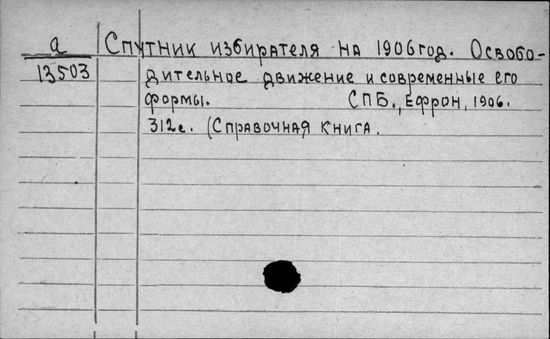 а Спутник избирателя на 1906 год. Освобо-
13503 дительное движение и современные его
формы. СПБ., Ефрон, 1906.
312с. (Справочная книга.